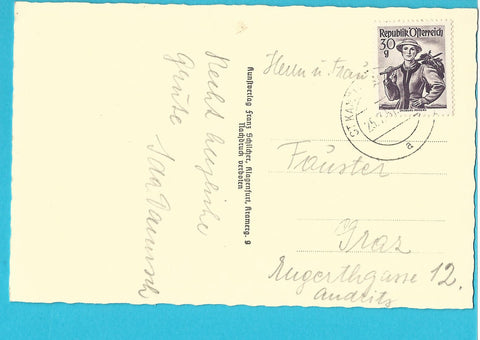 Recht herzliche
Grüße
Kunstverlag Franz Schilcher, Klagenfurt, Aramerg. 9
Nachdruck verboten
Republik Österreich
30
g
Herrn u. Frau
Fauster
Graz
Engerthgasse 12.
Andritz